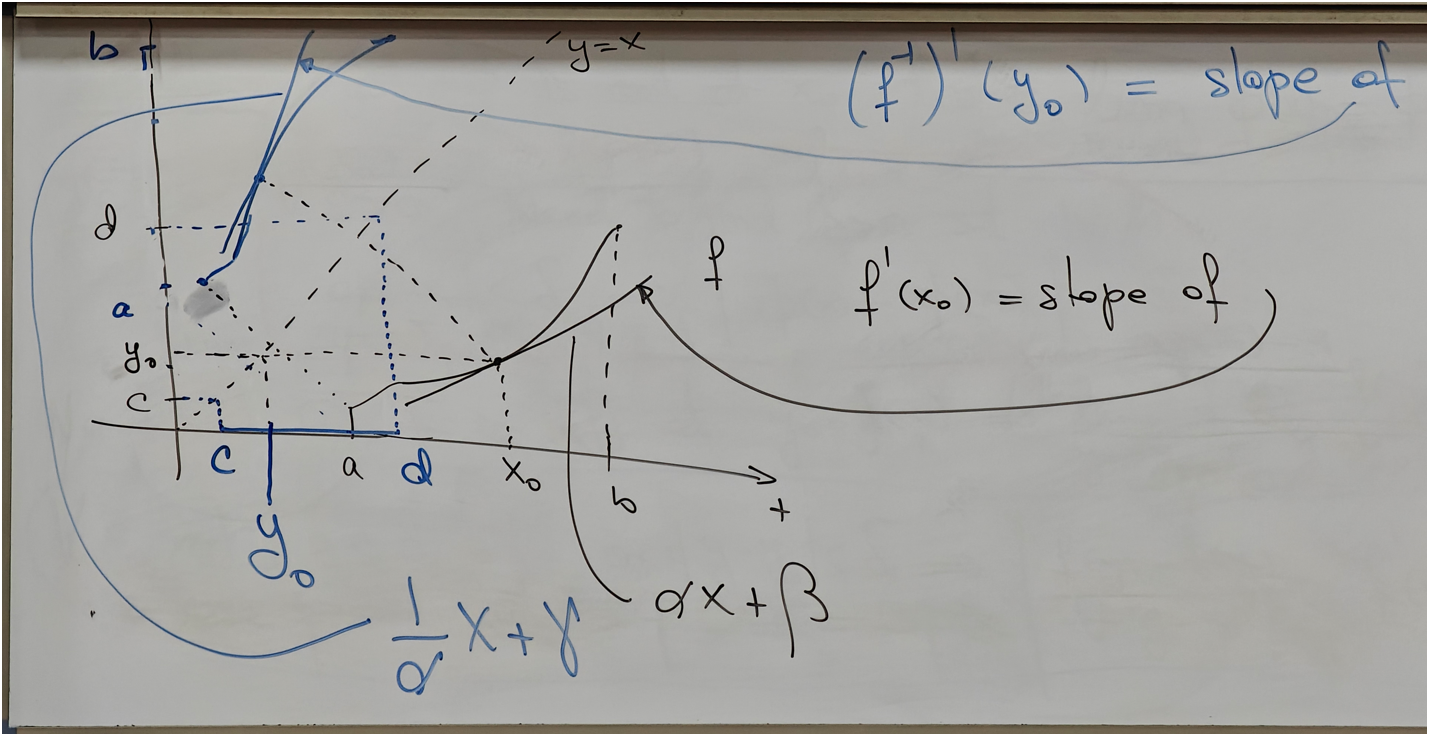 b
y=x
(f⁻¹)'(y₀) = slope of
d
f
f'(x₀) = slope of
a
y₀
c
c
a
d
x₀
b
y₀
αx+β
1/α x+γ